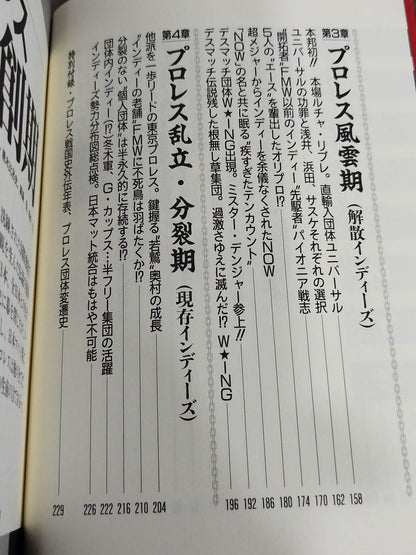 第3章 プロレス風雲期(解散インディーズ)
本邦初!! 本場ルチャ・リブレ。直輸入団体ユニバーサル 158
ユニバーサルの功罪と浅井、浜田、サスケそれぞれの選択 162
開拓者“FMW以前のインディー“先駆者”パイオニア戦志 170
5人の“エース”を輩出したオリプロ!? 174
超メジャーからインディーを余儀なくされたNOW 180
“NOW”の名と共に眠る“疾すぎたテンカウント” 186
デスマッチ団体W★ING出現。ミスター・デンジャー参上!! 192
デスマッチ伝説残した根無し草集団。過激さゆえに滅んだ!? W★ING 196
第4章 プロレス乱立・分裂期(現存インディーズ)
他派を一歩リードの東京プロレス。鍵握る“若鷲”奥村の成長 204
“インディーの老舗”FMWに不死鳥は羽ばたくか!? 210
分裂のない“個人団体”は半永久的に存続する!? 216
団体内インディー(!?)冬木軍、G・カップス…半フリー集団の活躍 222
インディーズ勢力分布図総点検。日本マット統合はもはや不可能 226
特別付録・プロレス戦国史外伝年表、プロレス団体変遷史 229